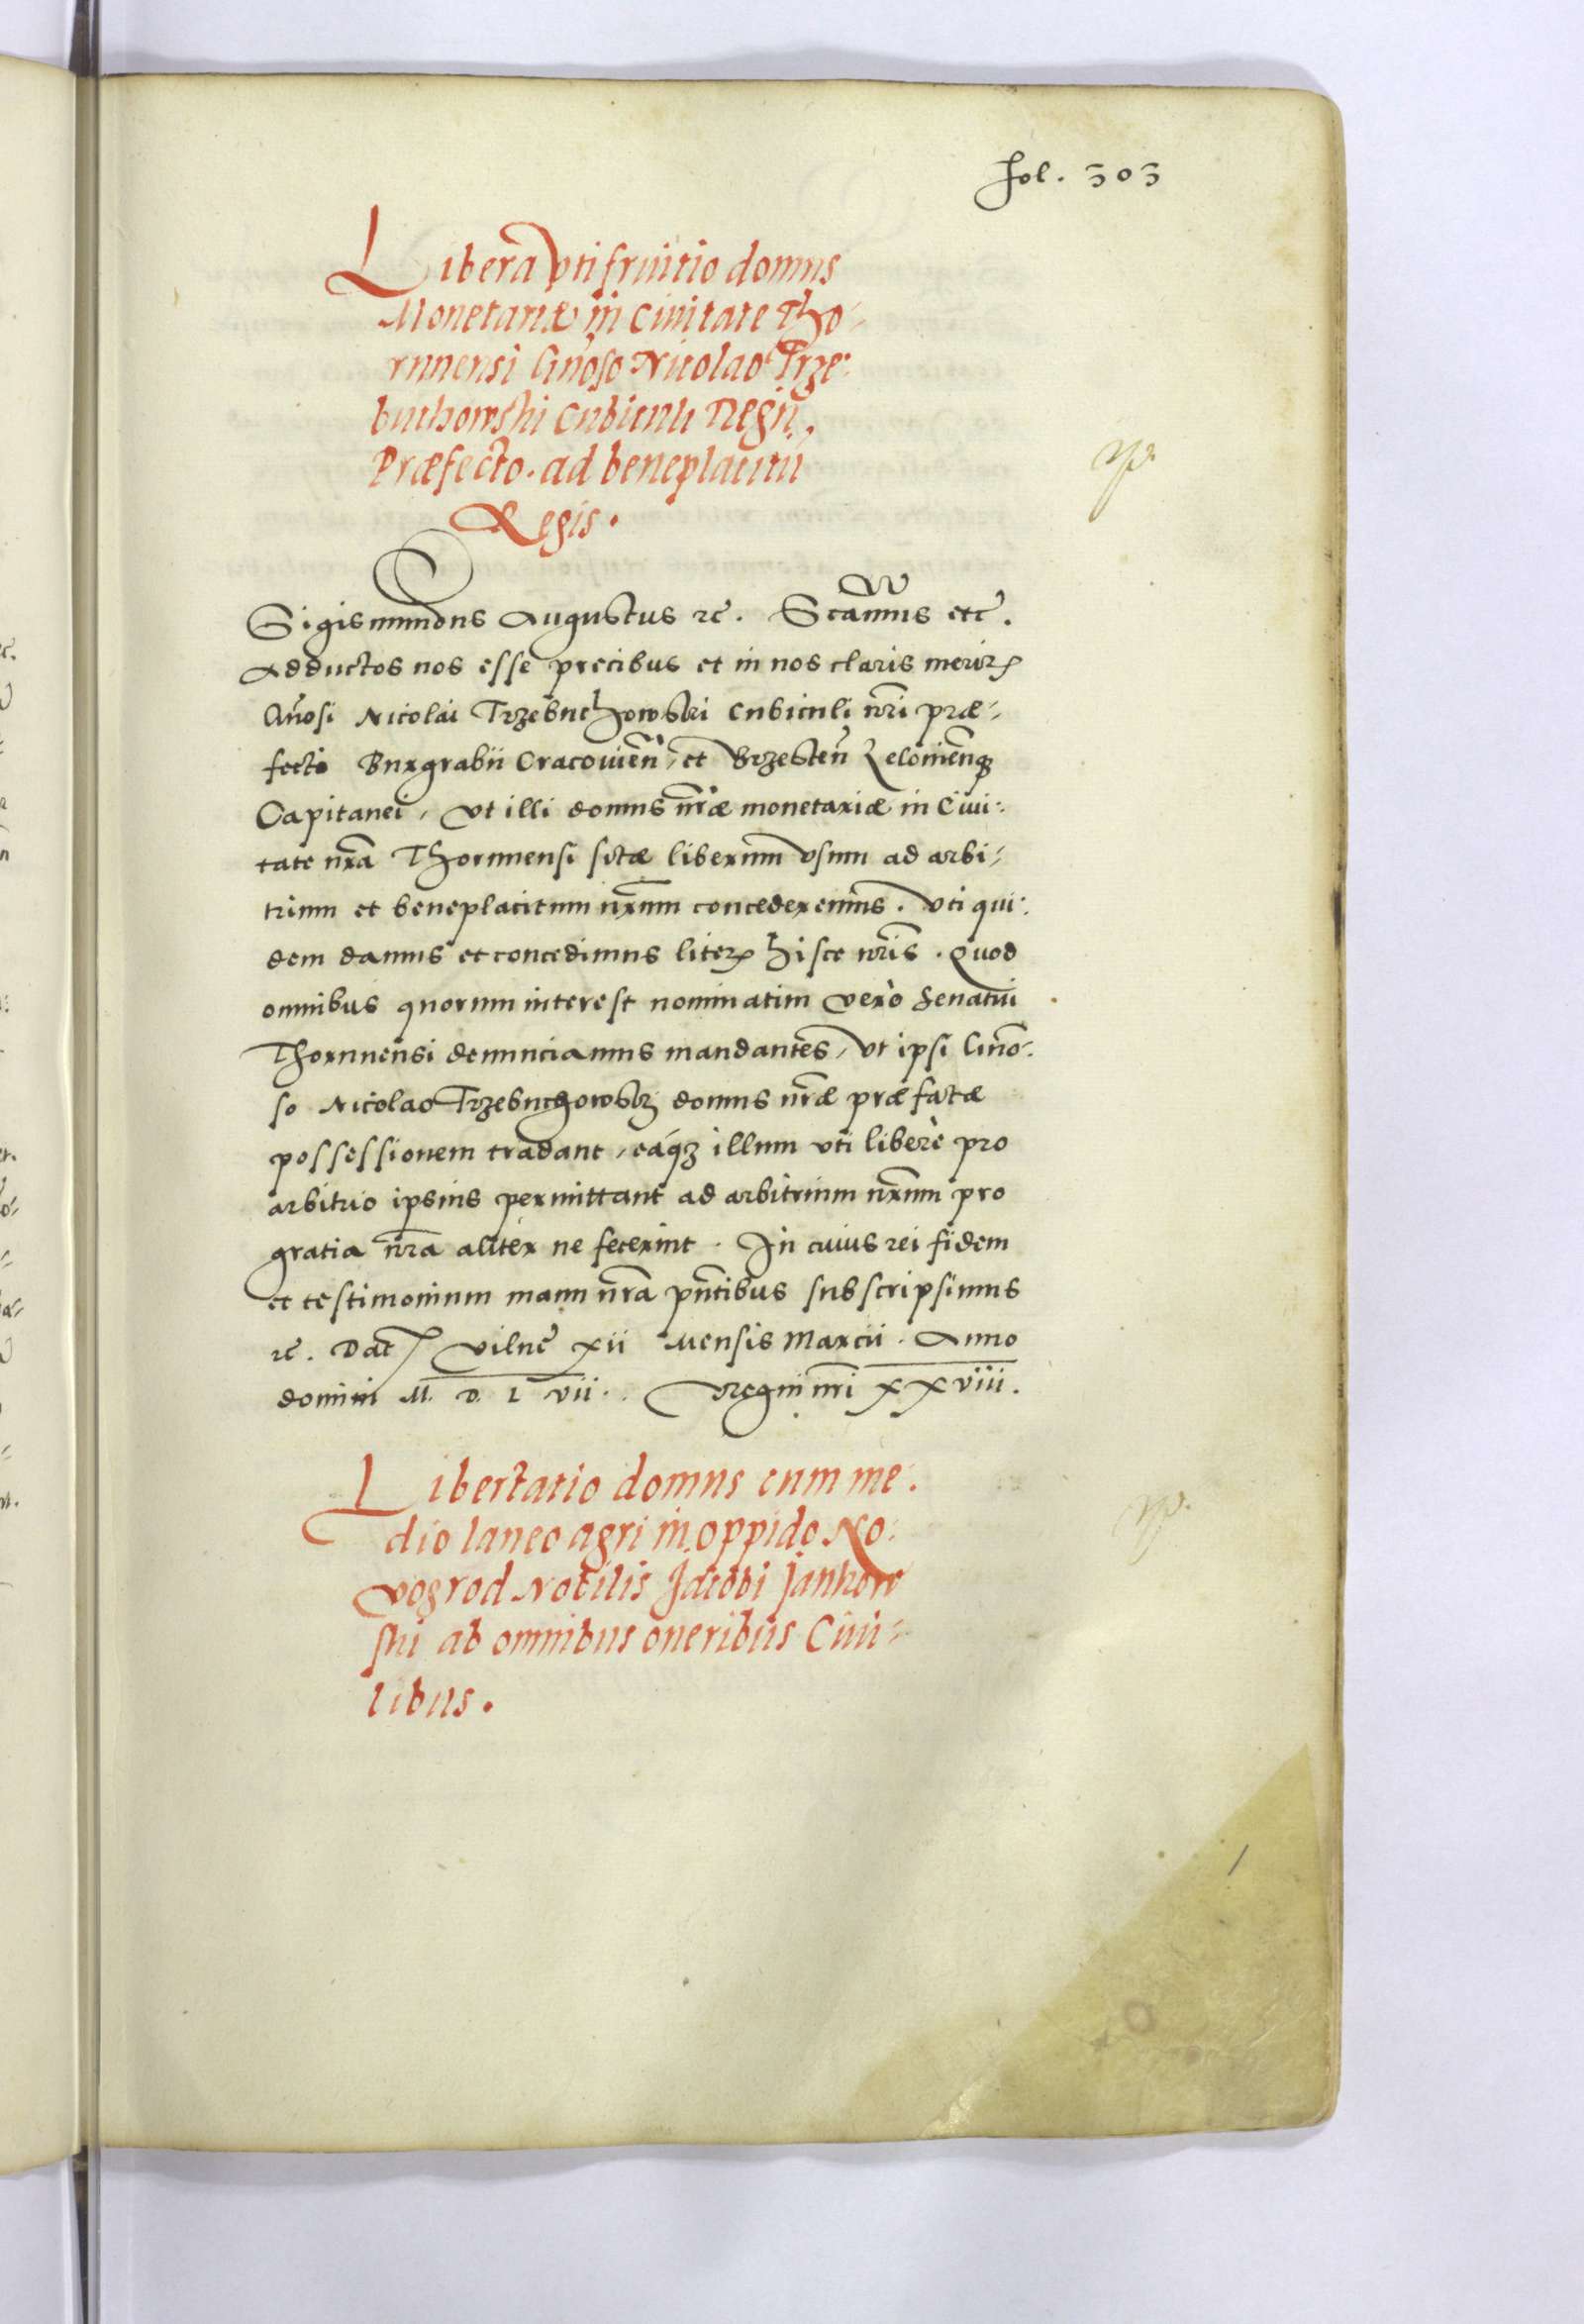 fol. 303
Libera vtifruitio domus
Monetariæ in Ciuitate Tho-
runensi Gnoso Nicolao Trze:
buchowski Cubiculi Regii
Præfecto. ad beneplacitū
Regis.
Sigismundus Augustus rc. Scamus etc.
Adductos nos esse precibus et in nos claris merit
Gnosi Nicolai Trzebuchowski Cubiculi nri præ-
fecti Burgrabii Cracouien, et Brzesten Zelomenqȝ
Capitanei, Vt illi domus nræ monetariæ in Ciui:
tate nra Thorunensi sitæ liberum vsum ad arbi-
trium et beneplacitum nrum concederemus. Vti qui:
dem damus et concedimus liter hisce nris. Quod
omnibus quorum interest nominatim verò Senatui
Thorunensi denunciamus mandantes, vt ipsi Gno:
so Nicolao Trzebuchowski domus nræ præfatæ
possessionem tradant, eaqȝ illum vti liberè pro
arbitrio ipsius permittant ad arbitrium nrum pro
gratia nra aliter ne fecerint. In cuius rei fidem
et testimonium manu nra pntibus subscripsimus
rc. Dat Vilne xii mensis Marcii. Anno
domini M. D. L vii. Vregni nri xxviii.
Libertatio domus cum me:
dio laneo agri in oppido No:
vogrod Nobilis Jacobi Jankow
ski ab omnibus oneribus Ciui-
libus.